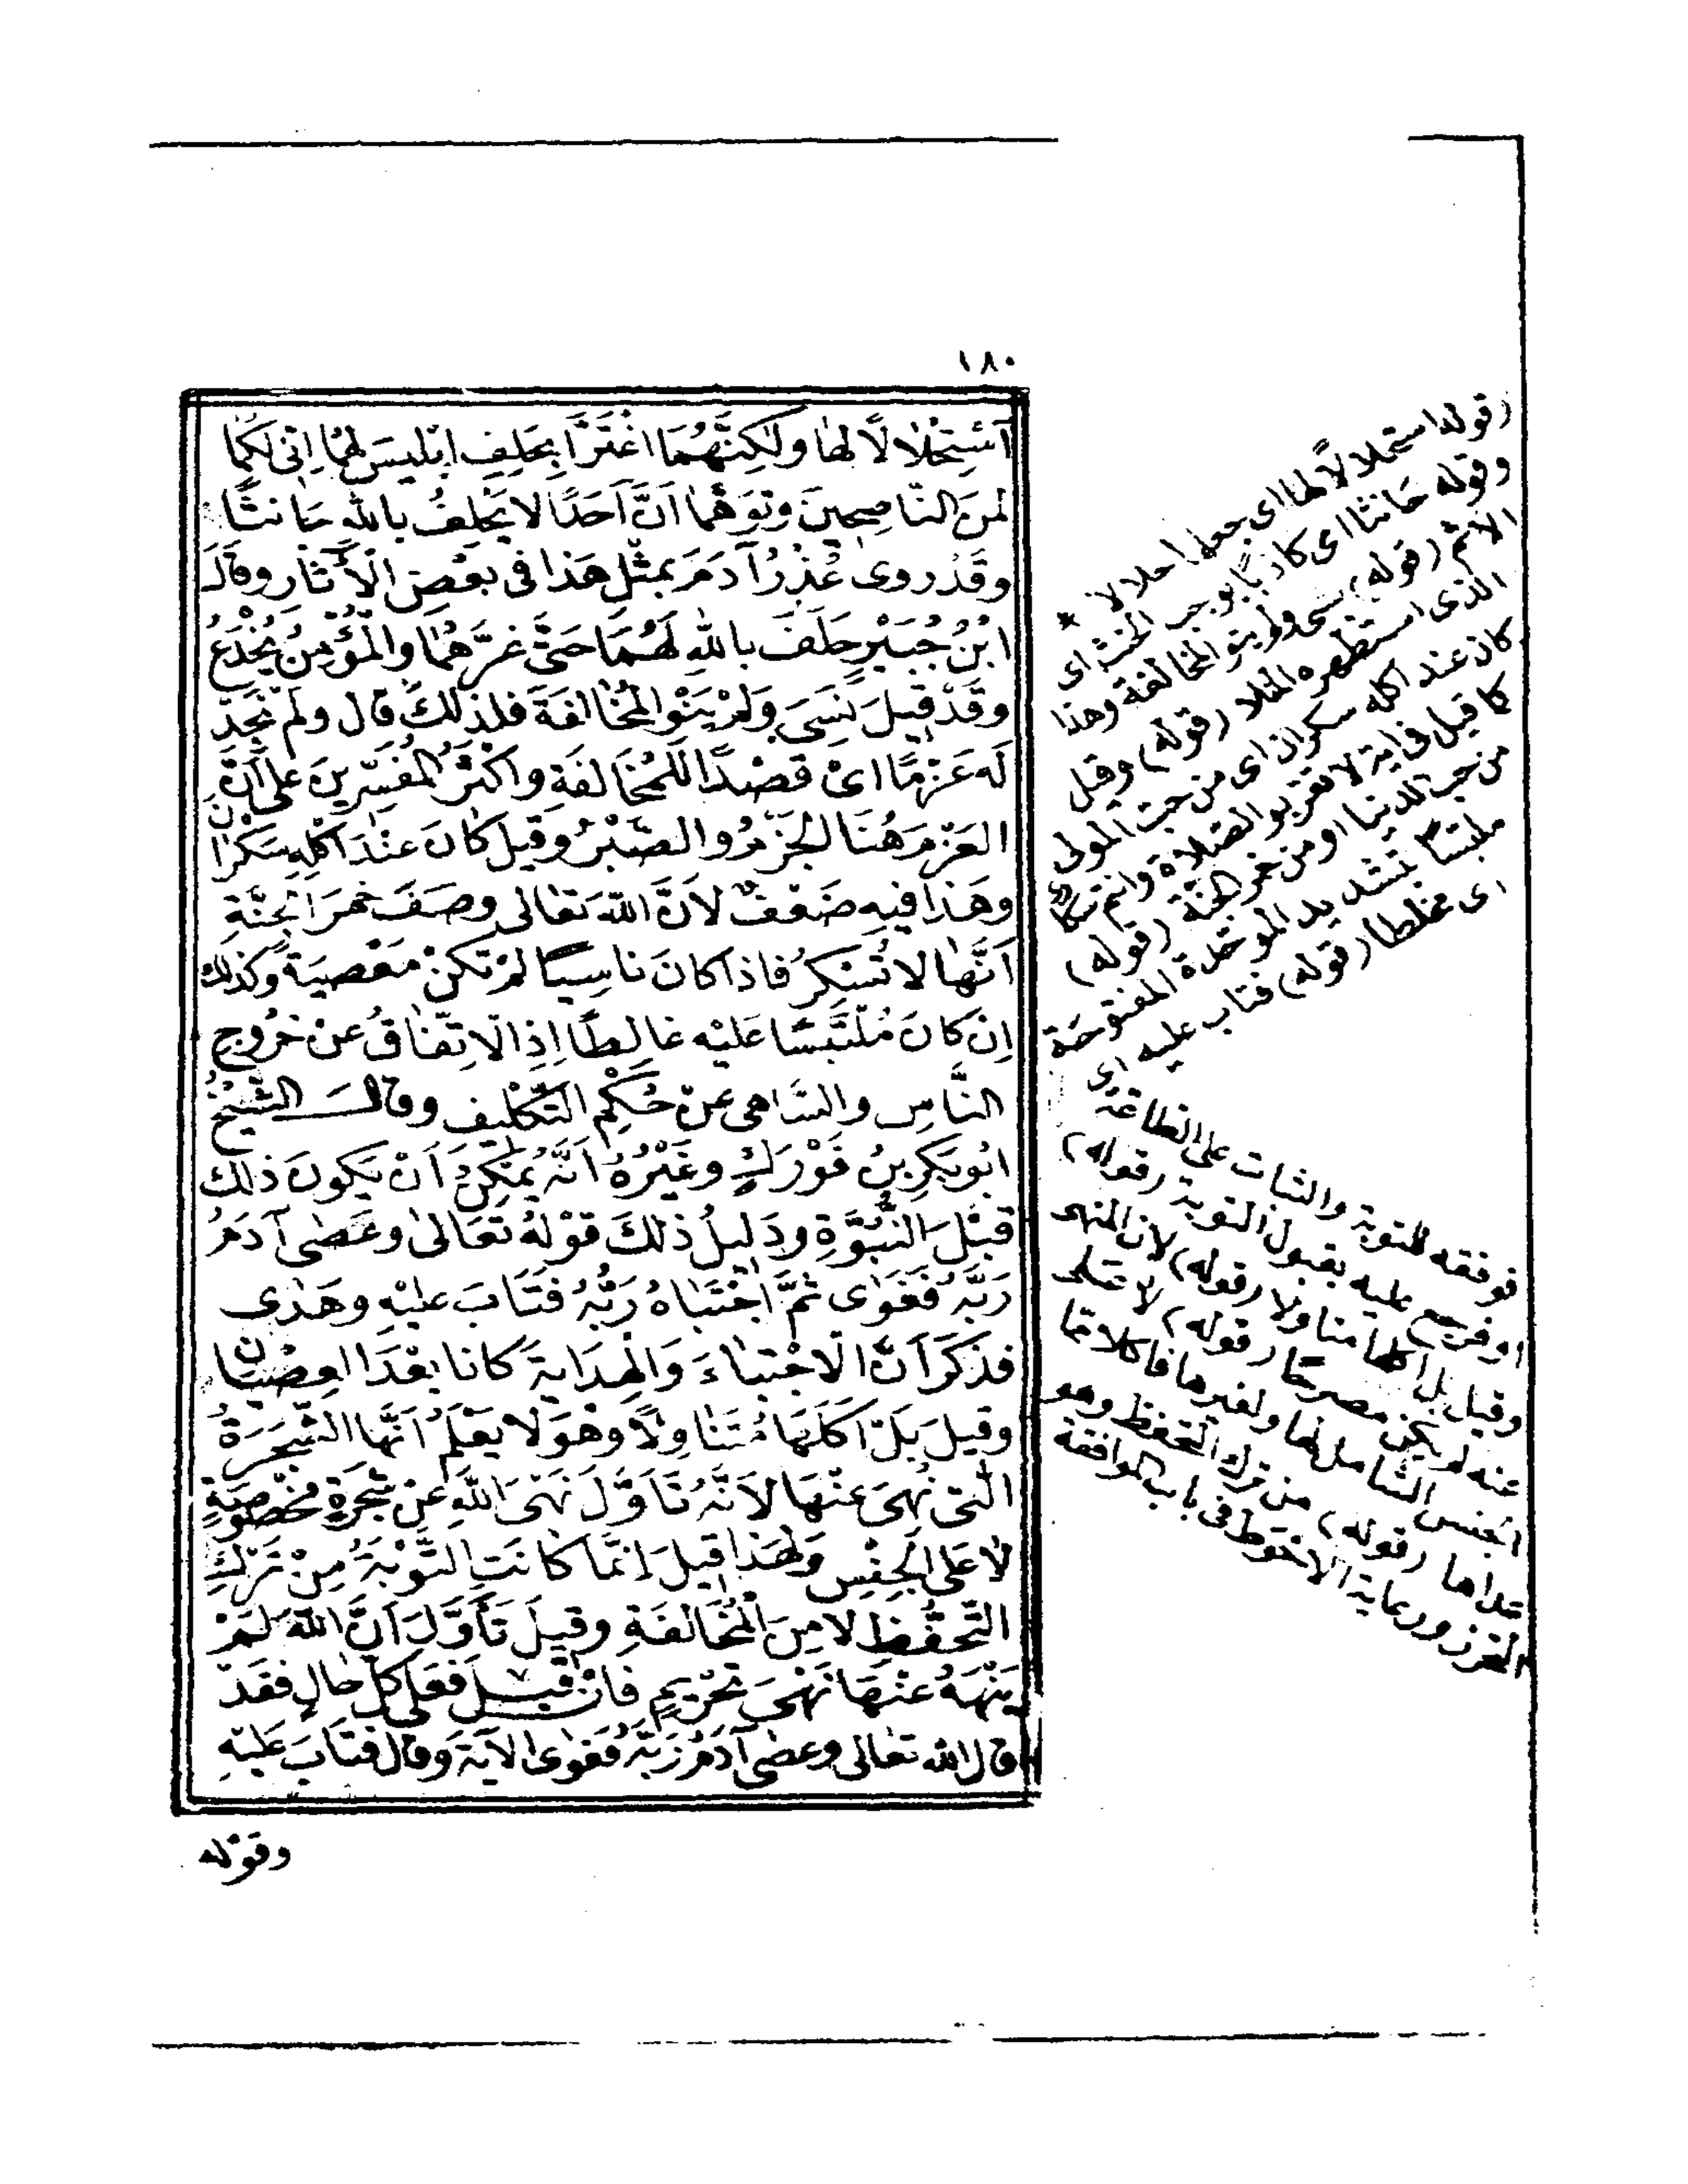 ١٨٠
اَسْتِحْلَالًا لَهَا وَلٰكِنَّهُمَا اغْتَرَّا بِحَلِفِ اِبْلِيسَ لَهُمَا اِنِّي لَكُمَا
لَمِنَ النَّاصِحِينَ وَتَوَهَّمَا اَنَّ اَحَدًا لَا يَحْلِفُ بِاللّٰهِ حَانِثًا
وَقَدْ رُوِىَ عُذْرُ آدَمَ بِمِثْلِ هَذَا فِى بَعْضِ الْآثَارِ وَقَالَ
ابْنُ جُبَيْرٍ حَلَفَ بِاللّٰهِ لَهُمَا حَتَّى غَرَّهُمَا وَالْمُؤْمِنُ يُخْدَعُ
وَقَدْ قِيلَ نَسِىَ وَلَمْ يَنْوِ الْمُخَالَفَةَ فَلِذٰلِكَ قَالَ وَلَمْ نَجِدْ
لَهُ عَزْمًا اَىْ قَصْدًا لِلْمُخَالَفَةِ وَاَكْثَرُ الْمُفَسِّرِينَ عَلَى اَنَّ
الْعَزْمَ هُنَا الْحَزْمُ وَالصَّبْرُ وَقِيلَ كَانَ عِنْدَ اَكْلِهِ سَكْرَانَ
وَهَذَا فِيهِ ضَعْفٌ لِاَنَّ اللّٰهَ تَعَالَى وَصَفَ خَمْرَ الْجَنَّةِ
اَنَّهَا لَا تُسْكِرُ فَاِذَا كَانَ نَاسِيًا لَمْ تَكُنْ مَعْصِيَةً وَكَذٰلِكَ
اِنْ كَانَ مُلَبَّسًا عَلَيْهِ غَالِطًا اِذِ الْاِتِّفَاقُ عَنْ خُرُوجِ
النَّاسِى وَالسَّاهِى عَنْ حُكْمِ التَّكْلِيفِ وَقَالَ الشَّيْخُ
اَبُو بَكْرِ بْنُ فَوْرَكٍ وَغَيْرُهُ اَنَّهُ يُمْكِنُ اَنْ يَكُونَ ذٰلِكَ
قَبْلَ النُّبُوَّةِ وَدَلِيلُ ذٰلِكَ قَوْلُهُ تَعَالَى وَعَصَى آدَمُ
رَبَّهُ فَغَوَى ثُمَّ اجْتَبَاهُ رَبُّهُ فَتَابَ عَلَيْهِ وَهَدَى
فَذَكَرَ اَنَّ الْاِجْتِبَاءَ وَالْهِدَايَةَ كَانَا بَعْدَ الْعِصْيَانِ
وَقِيلَ بَلْ اَكَلَهَا مُتَنَاوِلًا وَهُوَ لَا يَعْلَمُ اَنَّهَا الشَّجَرَةُ
الَّتِى نُهِىَ عَنْهَا لِاَنَّهُ تَاَوَّلَ نَهْىَ اللّٰهِ عَنْ شَجَرَةٍ مَخْصُوصَةٍ
لَا عَلَى الْجِنْسِ وَلِهَذَا قِيلَ اِنَّمَا كَانَتِ التَّوْبَةُ مِنْ تَرْكِ
التَّحَفُّظِ لَا مِنَ الْمُخَالَفَةِ وَقِيلَ تَأَوَّلَ اَنَّ اللّٰهَ لَمْ
يَنْهَهُ عَنْهَا نَهْىَ تَحْرِيمٍ فَاِنْ قِيلَ فَعَلَى كُلِّ حَالٍ فَقَدْ
قَالَ اللّٰهُ تَعَالَى وَعَصَى آدَمُ رَبَّهُ فَغَوَى الْآيَةَ وَقَالَ فَتَابَ عَلَيْهِ
وقوله
(قوله استحلالا لها اى جعلها حلالا
وقوله حانثا اى كاذبا يوجب الحنث اى
الاثم (قوله) نسى ولم ينو المخالفة وهذا
الذى استظهره المنلا (قوله) وقيل
كان عند اكله سكران اى من حب المولى
كما قيل فى اية لا تقربوا الصلاة وانتم سكارى
من حب الدنيا او من خمر الجنة (قوله)
ملبسا بتشديد الموحدة المفتوحة
اى مخلطا (قوله) فتاب عليه اى
فوفقه للتوبة والثبات على الطاعة
او فرجع عليه بقبول التوبة (قوله)
وقيل بل اكلها متناولا (قوله) لان المنهى
عنه لم يكن مصرحا (قوله) لا على
الجنس الشامل لها ولغيرها فاكلا مما
عداها (قوله) من ترك التحفظ وهو
التحرز ورعاية الاحوط فى باب الموافقة